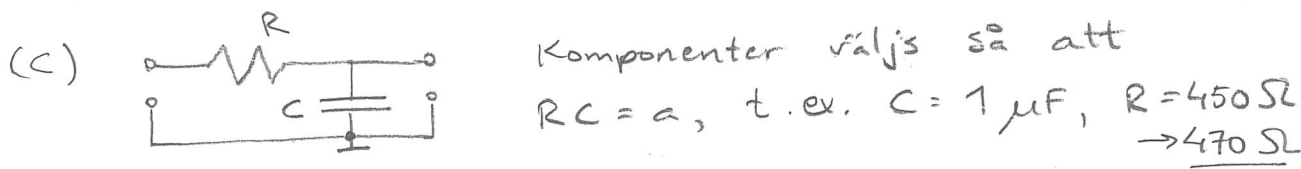 (c)
R
C
Komponenter väljs så att
RC = a, t.ex. C = 1 μF, R = 450 Ω
→ 470 Ω